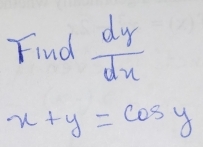 Find dy/dx
x + y = cos y